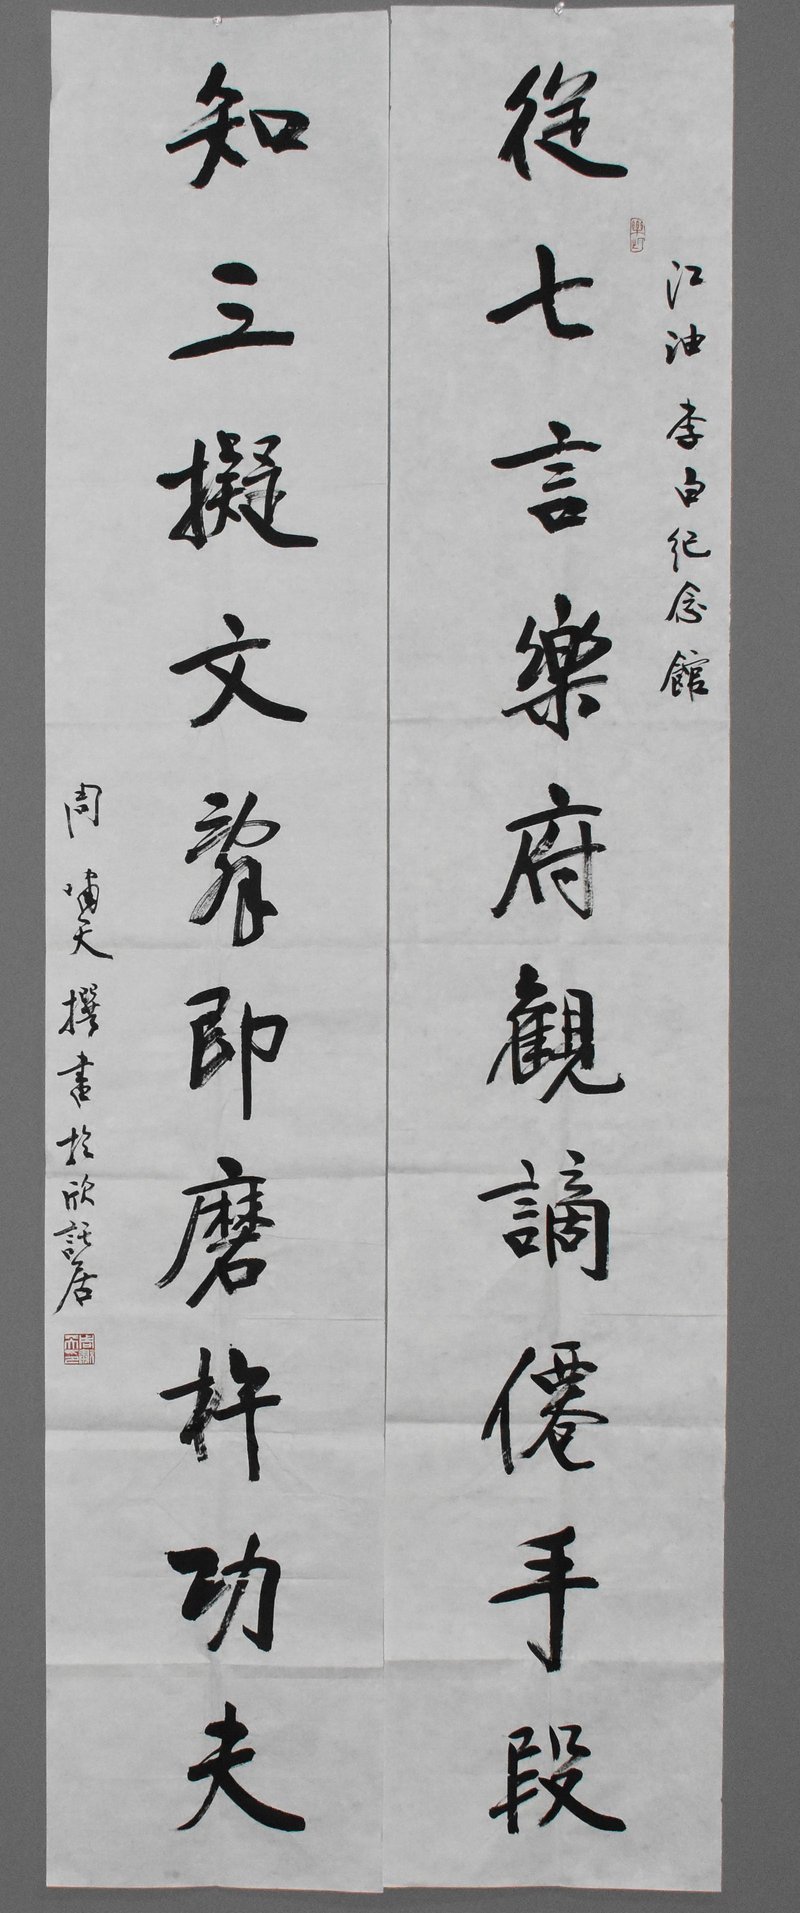 江油李白紀念館
從七言樂府觀謫僊手段
知三擬文即磨杵功夫
周嘯天撰書於欣託居